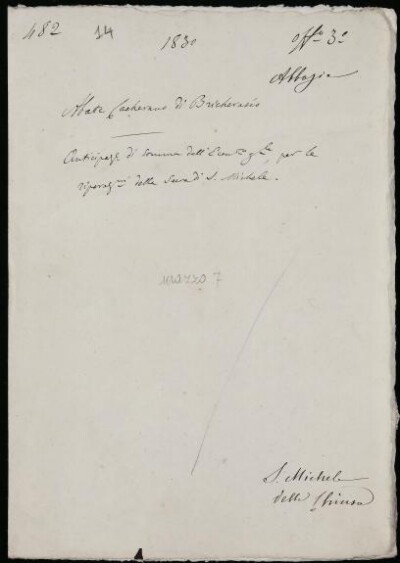 482 14 1830 Off.o 3.o
Abbazia
Abate Cacherano di Bricherasio
Anticipaz.e di somma dall'Econ.to g.le per le
riparaz.ni della Sacra di S. Michele.
marzo 7
S. Michele
della Chiusa